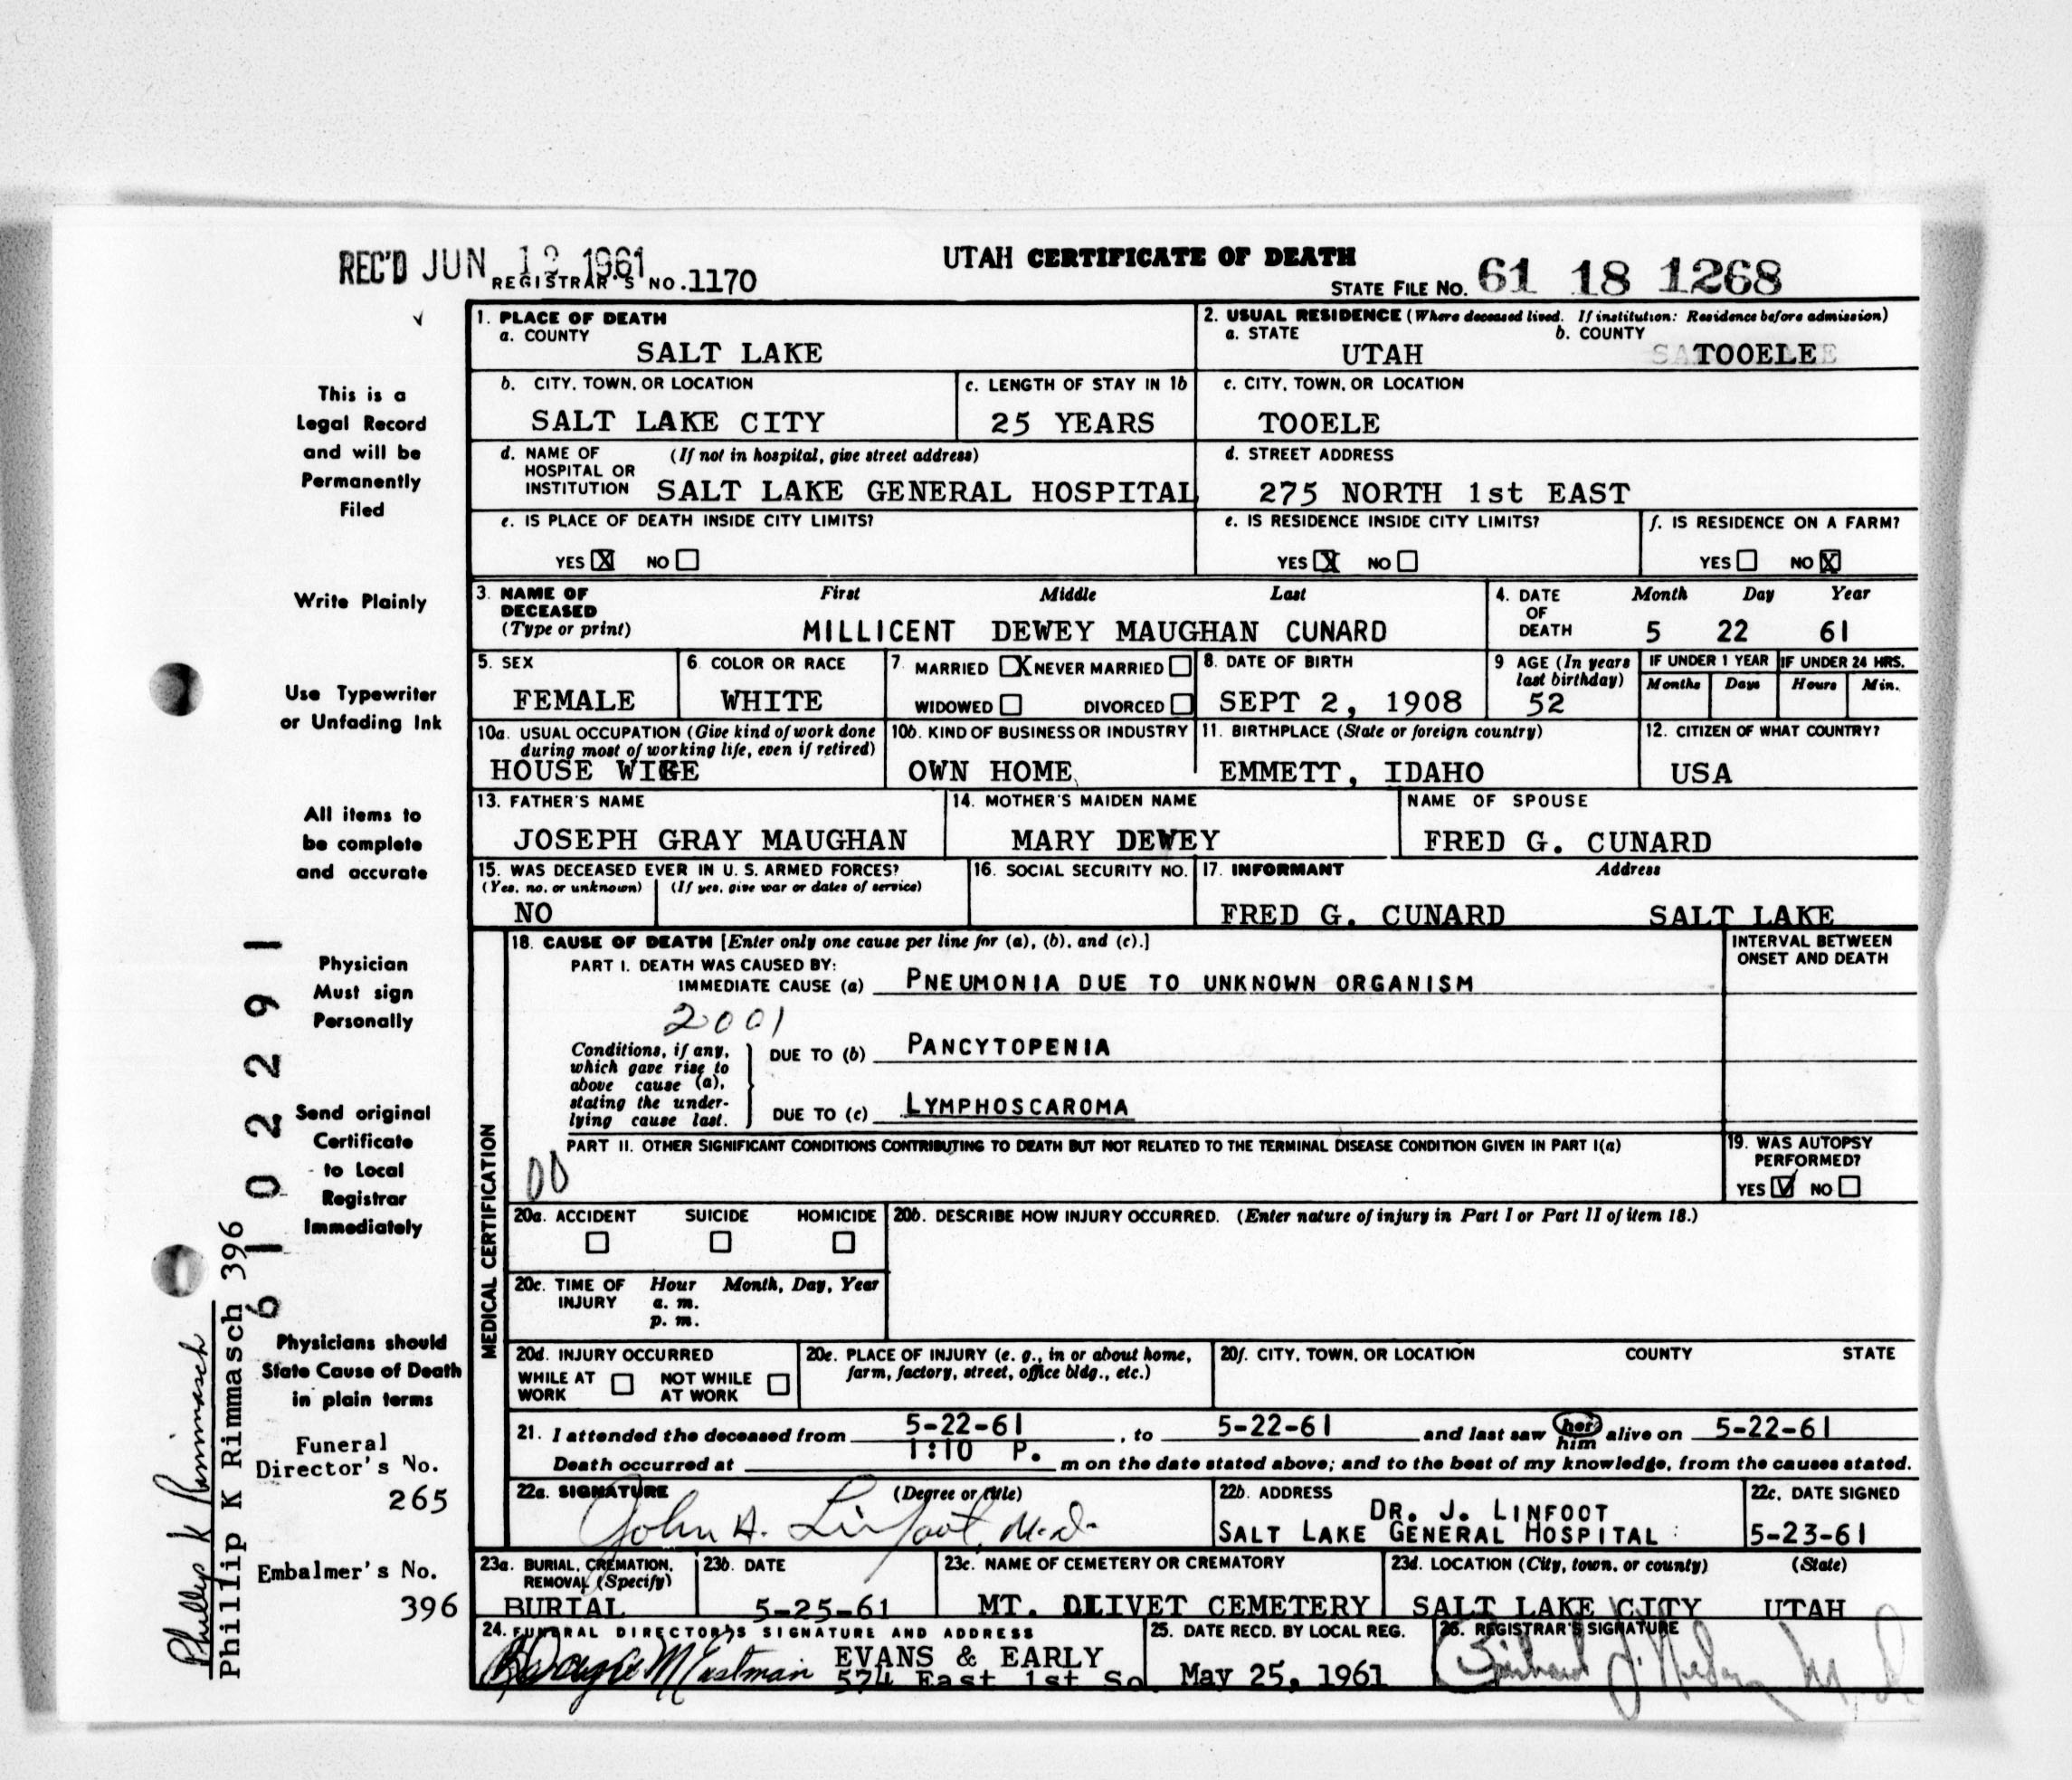 REC'D JUN 12 1961
REGISTRAR'S NO. 1170
UTAH CERTIFICATE OF DEATH
STATE FILE NO. 61 18 1268
1. PLACE OF DEATH
a. COUNTY
SALT LAKE
2. USUAL RESIDENCE (Where deceased lived. If institution: Residence before admission)
a. STATE b. COUNTY
UTAH TOOELE
b. CITY, TOWN, OR LOCATION
SALT LAKE CITY
c. LENGTH OF STAY IN 1b
25 YEARS
c. CITY, TOWN, OR LOCATION
TOOELE
d. NAME OF HOSPITAL OR INSTITUTION (If not in hospital, give street address)
SALT LAKE GENERAL HOSPITAL
d. STREET ADDRESS
275 NORTH 1st EAST
e. IS PLACE OF DEATH INSIDE CITY LIMITS?
YES X NO
e. IS RESIDENCE INSIDE CITY LIMITS?
YES X NO
f. IS RESIDENCE ON A FARM?
YES NO X
3. NAME OF DECEASED (Type or print)
First Middle Last
MILLICENT DEWEY MAUGHAN CUNARD
4. DATE OF DEATH
Month Day Year
5 22 61
5. SEX
FEMALE
6. COLOR OR RACE
WHITE
7. MARRIED X NEVER MARRIED
WIDOWED DIVORCED
8. DATE OF BIRTH
SEPT 2, 1908
9 AGE (In years last birthday)
52
IF UNDER 1 YEAR
Months Days
IF UNDER 24 HRS.
Hours Min.
10a. USUAL OCCUPATION (Give kind of work done during most of working life, even if retired)
HOUSE WIFE
10b. KIND OF BUSINESS OR INDUSTRY
OWN HOME
11. BIRTHPLACE (State or foreign country)
EMMETT, IDAHO
12. CITIZEN OF WHAT COUNTRY?
USA
13. FATHER'S NAME
JOSEPH GRAY MAUGHAN
14. MOTHER'S MAIDEN NAME
MARY DEWEY
NAME OF SPOUSE
FRED G. CUNARD
15. WAS DECEASED EVER IN U. S. ARMED FORCES?
(Yes, no, or unknown) (If yes, give war or dates of service)
NO
16. SOCIAL SECURITY NO.
17. INFORMANT Address
FRED G. CUNARD SALT LAKE
MEDICAL CERTIFICATION
18. CAUSE OF DEATH [Enter only one cause per line for (a), (b), and (c).]
INTERVAL BETWEEN ONSET AND DEATH
PART I. DEATH WAS CAUSED BY:
IMMEDIATE CAUSE (a) PNEUMONIA DUE TO UNKNOWN ORGANISM
2001
Conditions, if any, which gave rise to above cause (a), stating the underlying cause last.
DUE TO (b) PANCYTOPENIA
DUE TO (c) LYMPHOSCAROMA
PART II. OTHER SIGNIFICANT CONDITIONS CONTRIBUTING TO DEATH BUT NOT RELATED TO THE TERMINAL DISEASE CONDITION GIVEN IN PART I(a)
00
19. WAS AUTOPSY PERFORMED?
YES ✓ NO
20a. ACCIDENT SUICIDE HOMICIDE
20b. DESCRIBE HOW INJURY OCCURRED. (Enter nature of injury in Part I or Part II of item 18.)
20c. TIME OF INJURY
Hour Month, Day, Year
a. m.
p. m.
20d. INJURY OCCURRED
WHILE AT WORK NOT WHILE AT WORK
20e. PLACE OF INJURY (e. g., in or about home, farm, factory, street, office bldg., etc.)
20f. CITY, TOWN, OR LOCATION COUNTY STATE
21. I attended the deceased from 5-22-61, to 5-22-61 and last saw her him alive on 5-22-61
Death occurred at 1:10 P. m on the date stated above; and to the best of my knowledge, from the causes stated.
22a. SIGNATURE (Degree or title)
John A. Linfoot, M.D.
22b. ADDRESS
DR. J. LINFOOT
SALT LAKE GENERAL HOSPITAL
22c. DATE SIGNED
5-23-61
23a. BURIAL, CREMATION, REMOVAL (Specify)
BURIAL
23b. DATE
5-25-61
23c. NAME OF CEMETERY OR CREMATORY
MT. OLIVET CEMETERY
23d. LOCATION (City, town, or county) (State)
SALT LAKE CITY UTAH
24. FUNERAL DIRECTOR'S SIGNATURE AND ADDRESS
Eastman
EVANS & EARLY
574 East 1st So.
25. DATE RECD. BY LOCAL REG.
May 25, 1961
26. REGISTRAR'S SIGNATURE
This is a
Legal Record
and will be
Permanently
Filed
Write Plainly
Use Typewriter
or Unfading Ink
All items to
be complete
and accurate
Physician
Must sign
Personally
Send original
Certificate
to Local
Registrar
Immediately
Physicians should
State Cause of Death
in plain terms
Funeral
Director's No.
265
Embalmer's No.
396
61 102291
Phillip K Rimmasch
Phillip K Rimmasch 396